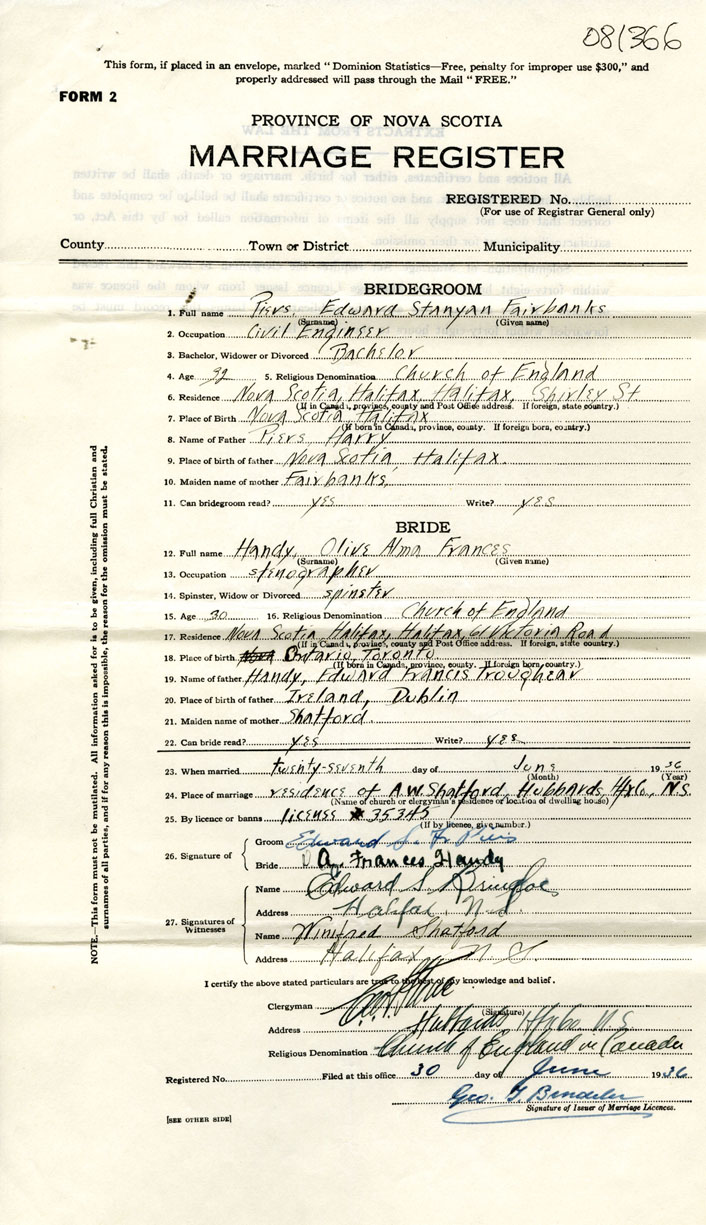 081366
This form, if placed in an envelope, marked "Dominion Statistics—Free, penalty for improper use $300," and
properly addressed will pass through the Mail "FREE."
FORM 2
PROVINCE OF NOVA SCOTIA
MARRIAGE REGISTER
REGISTERED No.
(For use of Registrar General only)
County Town or District Municipality
BRIDEGROOM
1. Full name Piers, Edward Stanyan Fairbanks
(Surname) (Given name)
2. Occupation Civil Engineer
3. Bachelor, Widower or Divorced Bachelor
4. Age 32 5. Religious Denomination Church of England
6. Residence Nova Scotia, Halifax, Halifax, Shirley St
(If in Canada, province, county and Post Office address. If foreign, state country.)
7. Place of Birth Nova Scotia Halifax
(If born in Canada, province, county. If foreign born, country.)
8. Name of Father Piers, Harry
9. Place of birth of father Nova Scotia, Halifax.
10. Maiden name of mother Fairbanks,
11. Can bridegroom read? yes Write? yes
BRIDE
12. Full name Handy, Olive Alma Frances
(Surname) (Given name)
13. Occupation stenographer
14. Spinster, Widow or Divorced spinster
15. Age 30 16. Religious Denomination Church of England
17. Residence Nova Scotia, Halifax, Halifax, 61 Victoria Road
(If in Canada, province, county and Post Office address. If foreign, state country.)
18. Place of birth Nova Ontario, Toronto
(If born in Canada, province, county. If foreign born, country.)
19. Name of father Handy, Edward Francis Troughear
20. Place of birth of father Ireland, Dublin
21. Maiden name of mother Shatford.
22. Can bride read? yes Write? yes
23. When married twenty-seventh day of June 1936
(Month) (Year)
24. Place of marriage residence of A.W. Shatford, Hubbards, Hfx Co, N.S.
(Name of church or clergyman's residence or location of dwelling house)
25. By licence or banns license # 35345
(If by licence, give number.)
26. Signature of
Groom Edward S. F. Piers
Bride O A. Frances Handy
27. Signatures of
Witnesses
Name Edward S.
Address Halifax, N.S.
Name Winifred Shatford
Address Halifax N S.
I certify the above stated particulars are true to the best of my knowledge and belief.
Clergyman
(Signature)
Address Hubbards N.S.
Religious Denomination Church of England in Canada
Registered No. Filed at this office 30 day of June 1936
Geo.
Signature of Issuer of Marriage Licences.
[SEE OTHER SIDE]
NOTE.—This form must not be mutilated. All information asked for is to be given, including full Christian and
surnames of all parties, and if for any reason this is impossible, the reason for the omission must be stated.